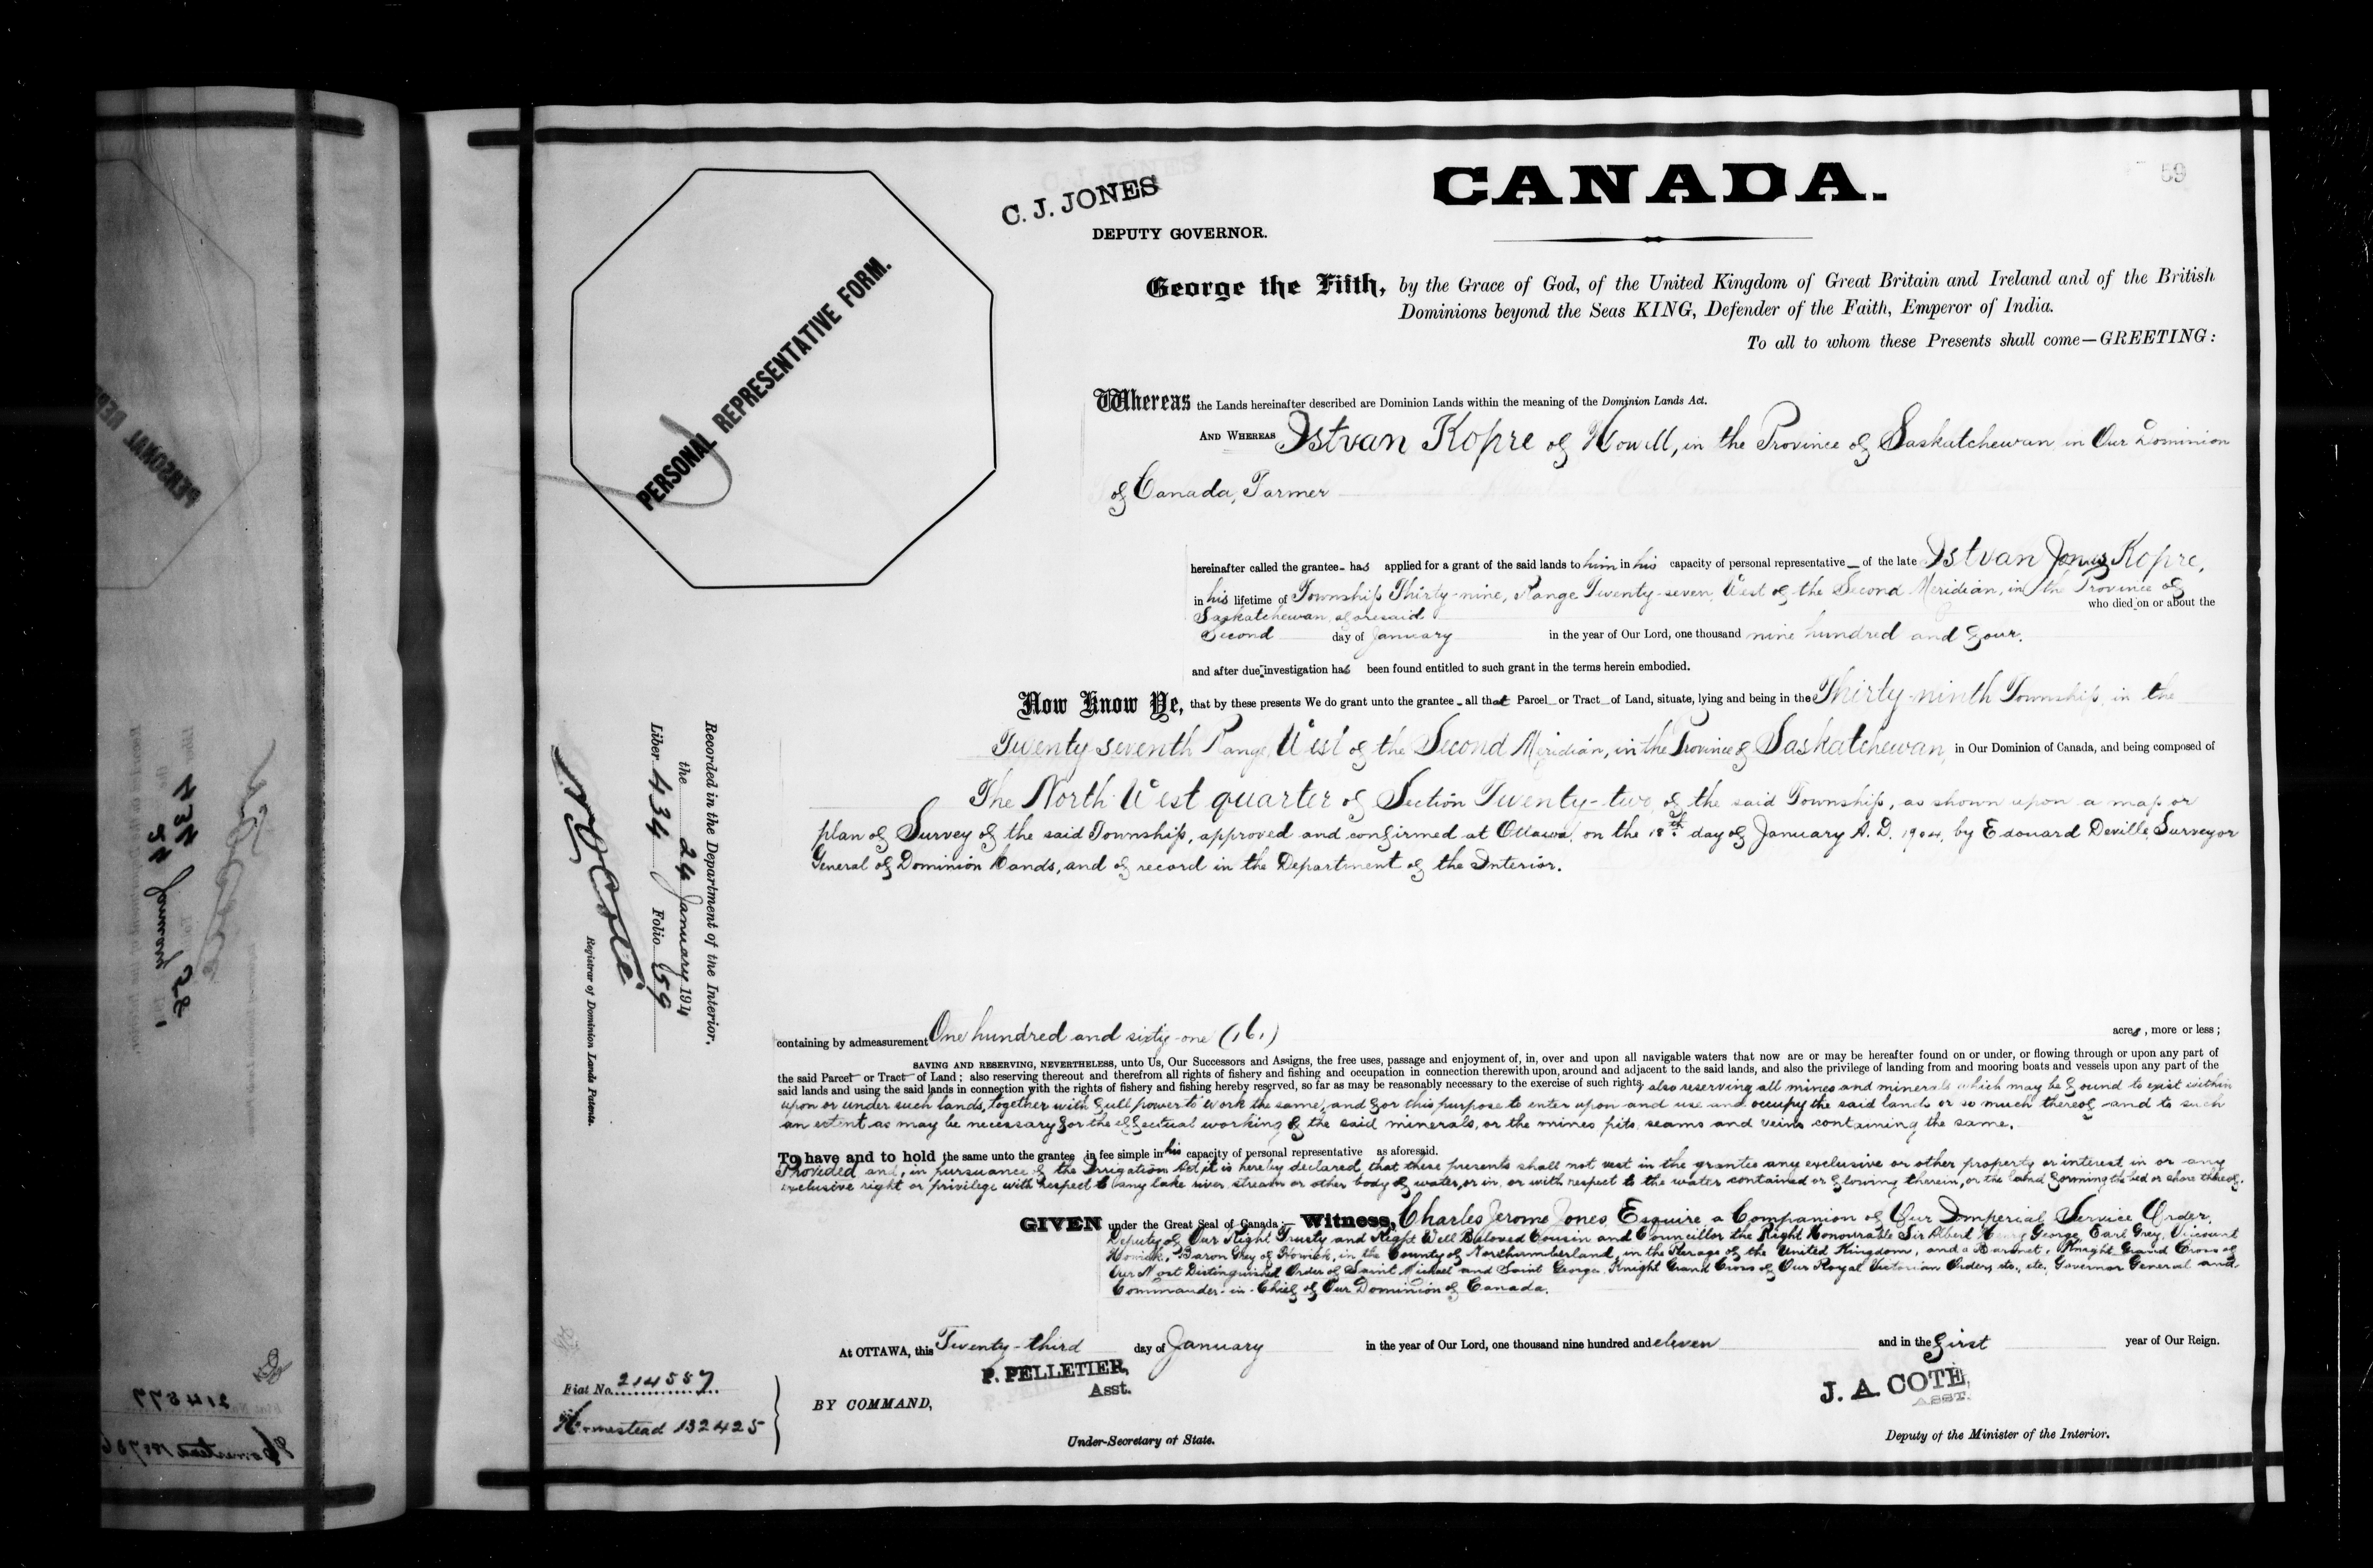 59
C. J. JONES
DEPUTY GOVERNOR.
CANADA.
PERSONAL REPRESENTATIVE FORM.
George the Fifth, by the Grace of God, of the United Kingdom of Great Britain and Ireland and of the British
Dominions beyond the Seas KING, Defender of the Faith, Emperor of India.
To all to whom these Presents shall come—GREETING:
Whereas the Lands hereinafter described are Dominion Lands within the meaning of the Dominion Lands Act.
AND WHEREAS Istvan Kopre of Howell, in the Province of Saskatchewan in Our Dominion
of Canada, Farmer
hereinafter called the grantee has applied for a grant of the said lands to him in his capacity of personal representative of the late Istvan Kopre,
in his lifetime of Township Thirty-nine, Range Twenty-seven, West of the Second Meridian, in the Province of
Saskatchewan, aforesaid who died on or about the
Second day of January in the year of Our Lord, one thousand nine hundred and four.
and after due investigation has been found entitled to such grant in the terms herein embodied.
Now Know Ye, that by these presents We do grant unto the grantee all that Parcel or Tract of Land, situate, lying and being in the Thirty-ninth Township, in the
Twenty seventh Range, West of the Second Meridian, in the Province of Saskatchewan, in Our Dominion of Canada, and being composed of
The North West quarter of Section Twenty-two, of the said Township, as shown upon a map or
plan of Survey of the said Township, approved and confirmed at Ottawa, on the 18th day of January A. D. 1904, by Edouard Deville, Surveyor
General of Dominion Lands, and of record in the Department of the Interior.
Recorded in the Department of the Interior,
the 24 January 1911
Liber 434 Folio 59
Registrar of Dominion Lands Patents.
containing by admeasurement One hundred and sixty-one (161) acres, more or less;
SAVING AND RESERVING, NEVERTHELESS, unto Us, Our Successors and Assigns, the free uses, passage and enjoyment of, in, over and upon all navigable waters that now are or may be hereafter found on or under, or flowing through or upon any part of
the said Parcel or Tract of Land; also reserving thereout and therefrom all rights of fishery and fishing and occupation in connection therewith upon, around and adjacent to the said lands, and also the privilege of landing from and mooring boats and vessels upon any part of the
said lands and using the said lands in connection with the rights of fishery and fishing hereby reserved, so far as may be reasonably necessary to the exercise of such rights, also reserving all mines and minerals which may be found to exist within
upon or under such lands, together with full power to work the same, and for this purpose to enter upon and use and occupy the said lands or so much thereof and to such
an extent as may be necessary for the effectual working of the said minerals, or the mines pits seams and veins containing the same.
To have and to hold the same unto the grantee in fee simple in his capacity of personal representative as aforesaid.
Provided and, in pursuance of the Irrigation Act, it is hereby declared, that these presents shall not vest in the grantee any exclusive or other property or interest in or any
exclusive right or privilege with respect to any lake river stream or other body of water, or in or with respect to the water contained or flowing therein, or the land forming the bed or shore thereof.
GIVEN under the Great Seal of Canada:— Witness, Charles Jerome Jones, Esquire, a Companion of Our Imperial Service Order,
Deputy of Our Right Trusty and Right Well Beloved Cousin and Councillor the Right Honourable Sir Albert Henry George, Earl Grey, Viscount
Howick, Baron Grey of Howick, in the County of Northumberland, in the Peerage of the United Kingdom, and a Baronet, Knight Grand Cross of
Our Most Distinguished Order of Saint Michael and Saint George, Knight Grand Cross of Our Royal Victorian Order, etc., etc., Governor General and
Commander-in-Chief of Our Dominion of Canada.
At OTTAWA, this Twenty-third day of January in the year of Our Lord, one thousand nine hundred and eleven and in the first year of Our Reign.
P. PELLETIER,
Asst.
J. A. COTÉ,
ASST.
Fiat No. 214557
Homestead 132425
BY COMMAND,
Under-Secretary of State.
Deputy of the Minister of the Interior.